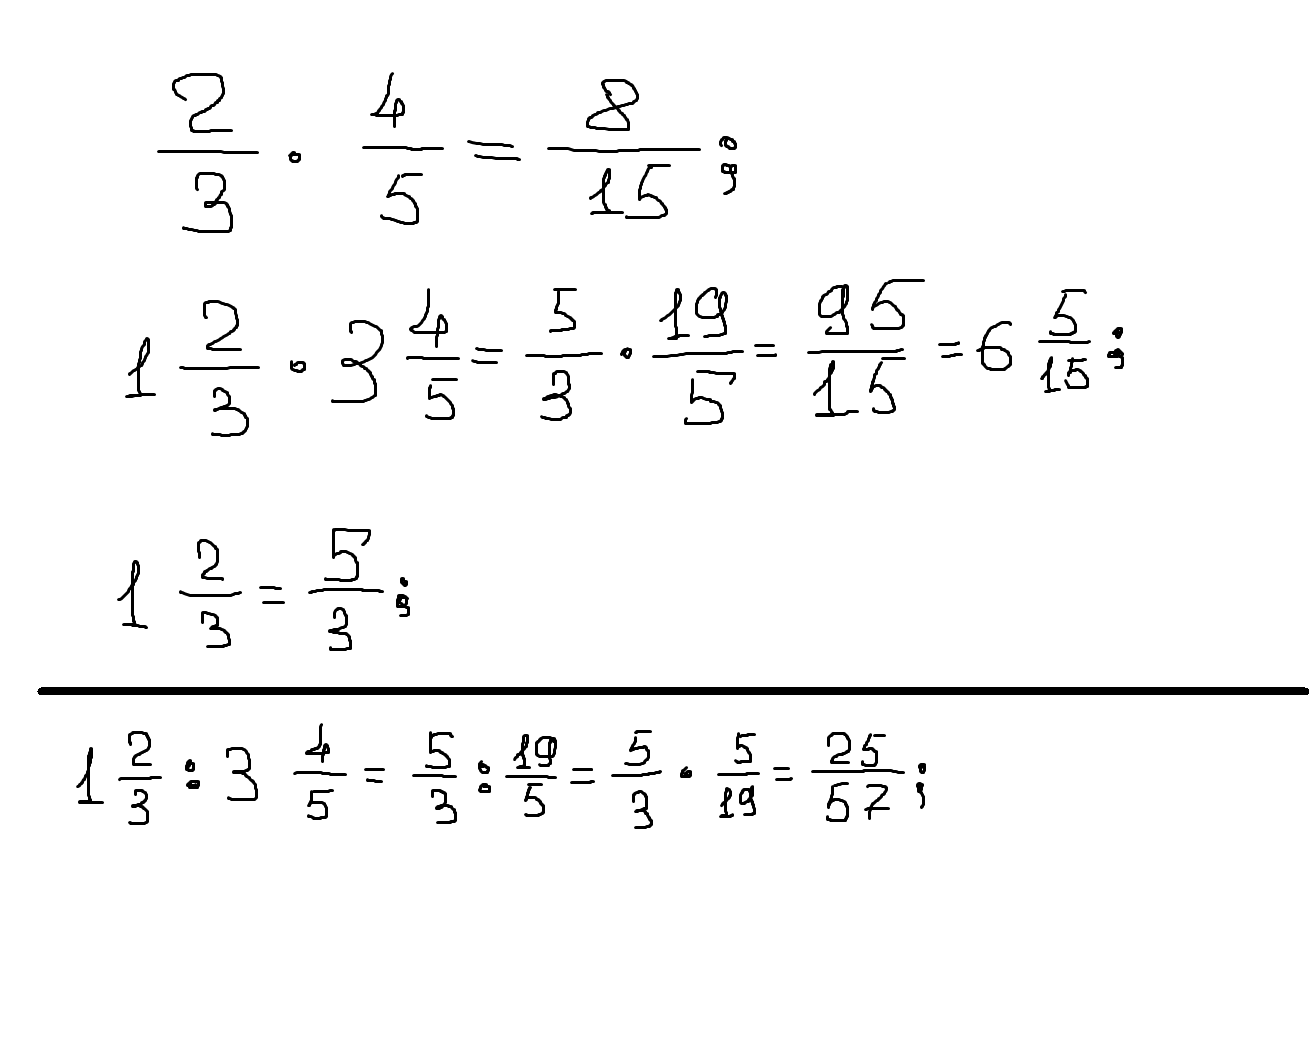 2/3 · 4/5 = 8/15 ;
1 2/3 · 3 4/5 = 5/3 · 19/5 = 95/15 = 6 5/15 ;
1 2/3 = 5/3 ;
1 2/3 : 3 4/5 = 5/3 : 19/5 = 5/3 · 5/19 = 25/57 ;